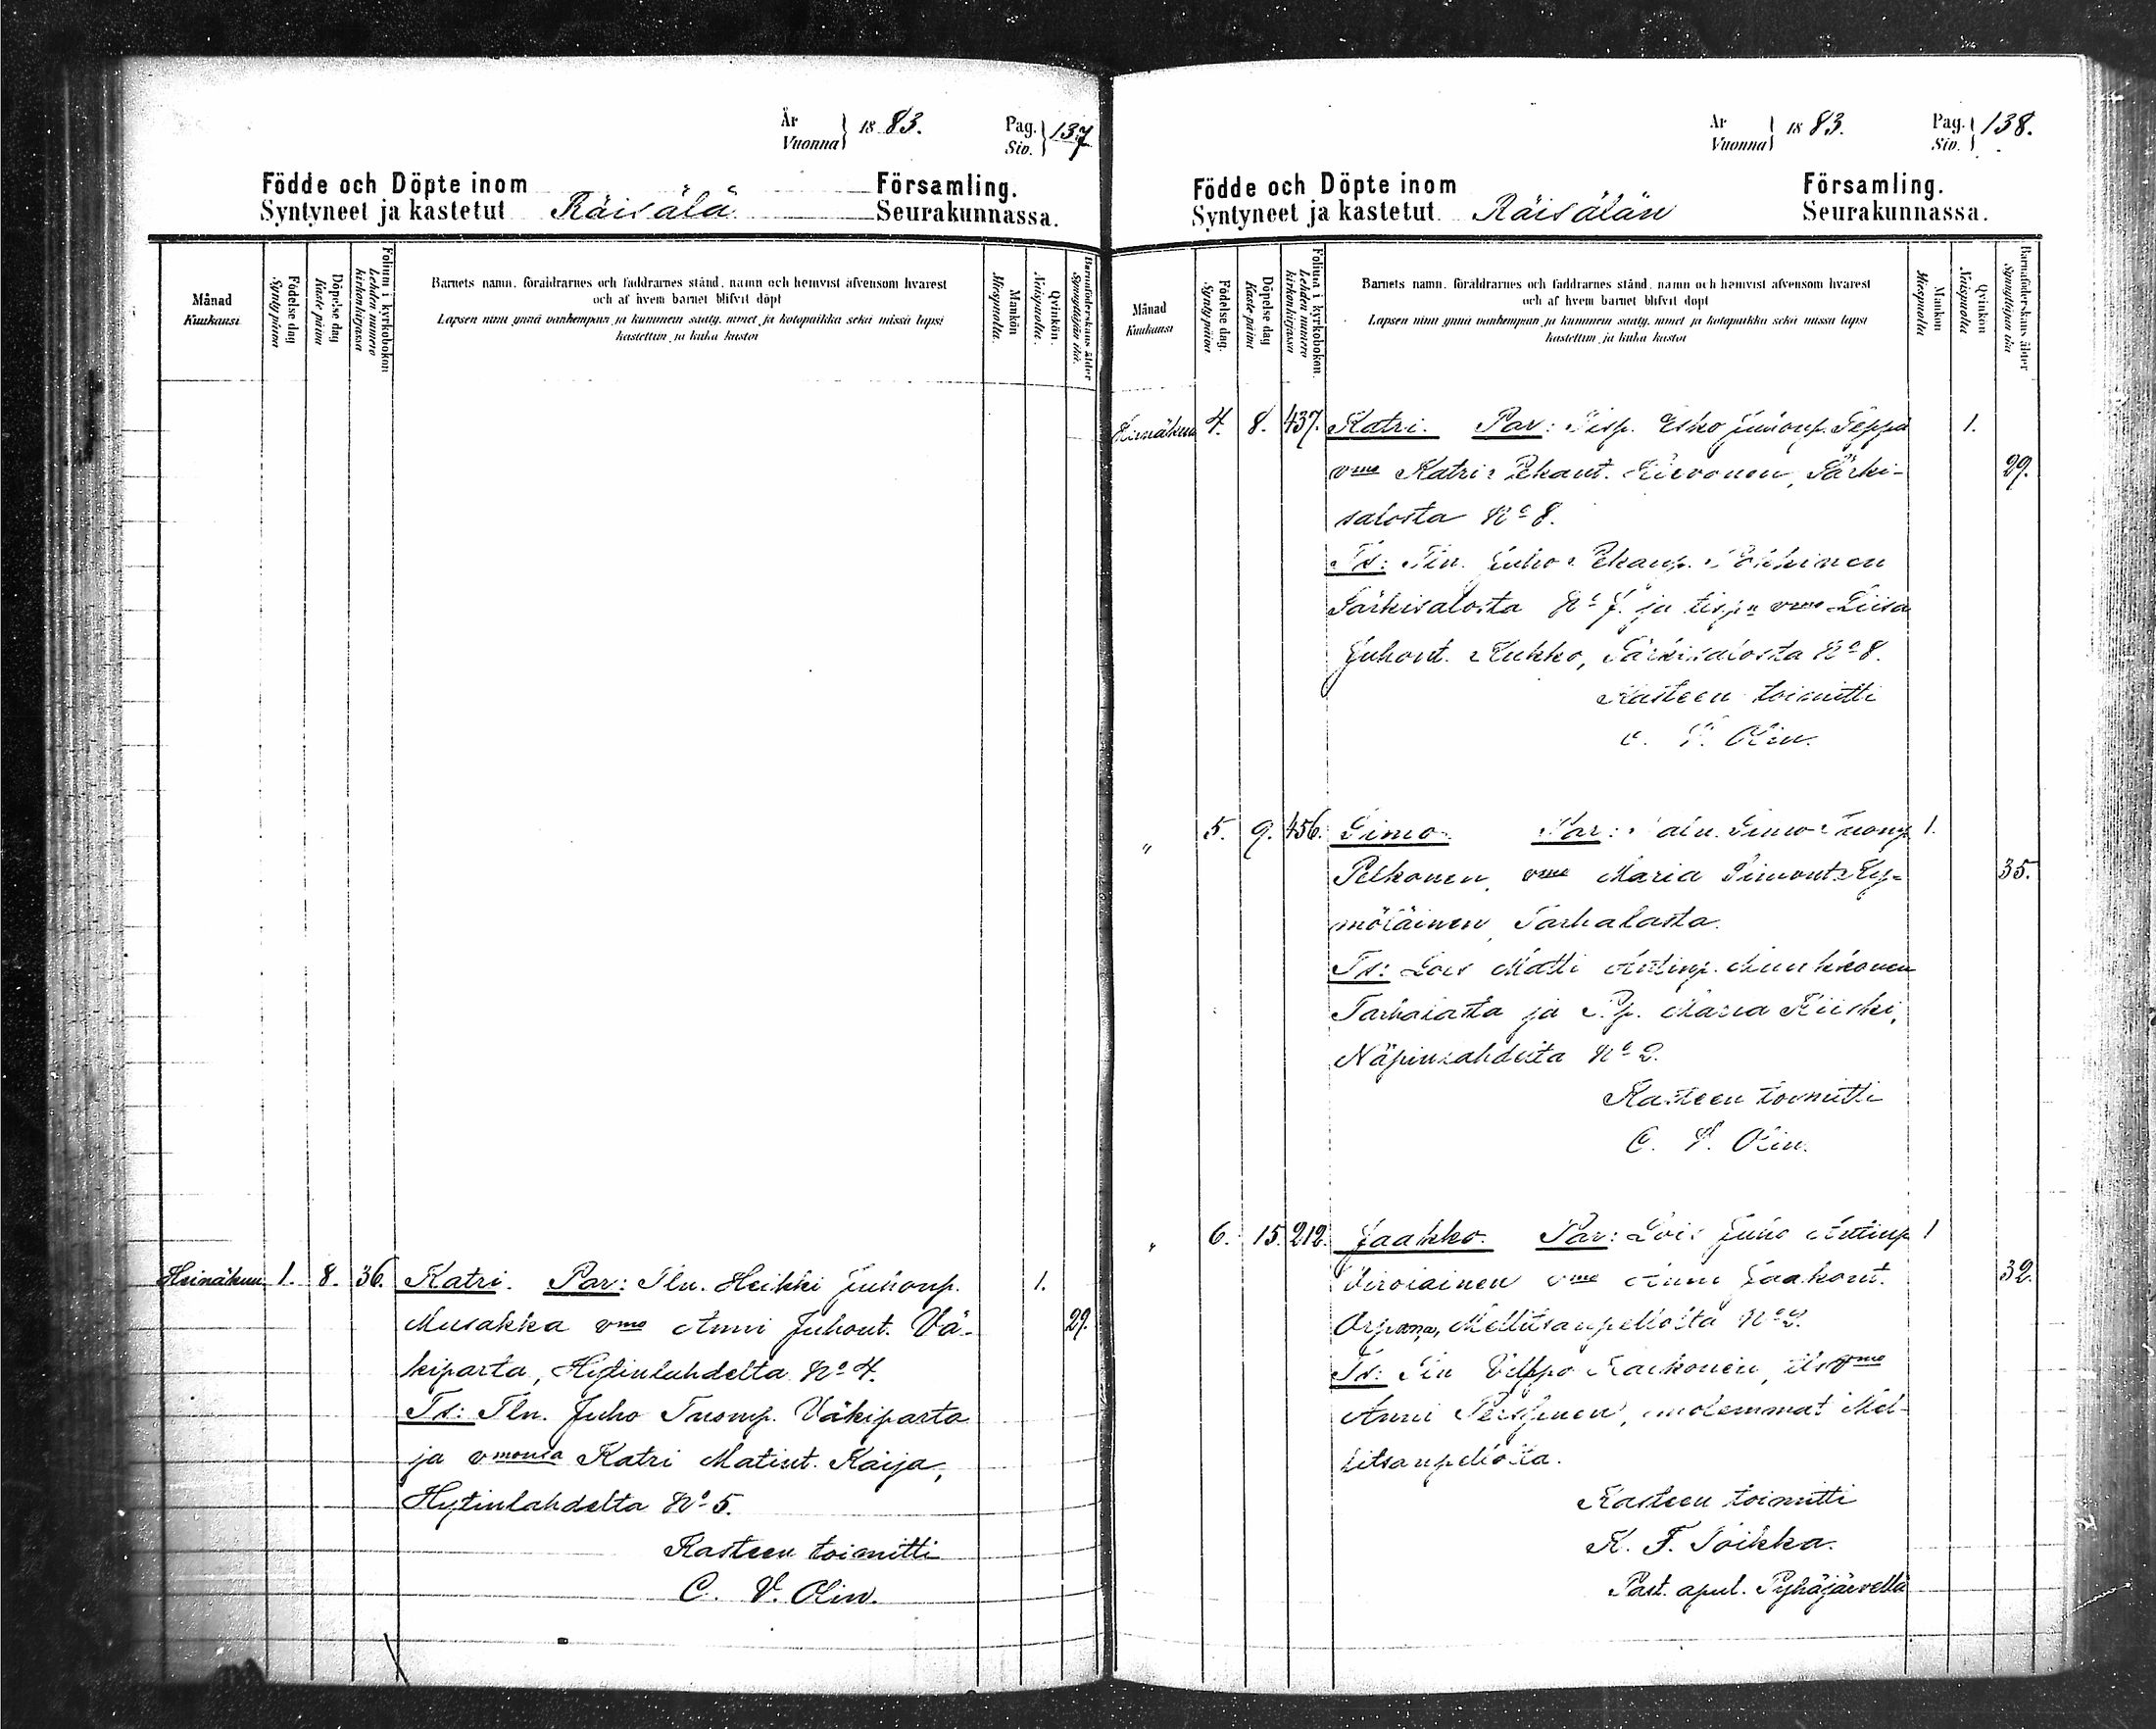 År
Vuonna } 18 83.
Pag.
Siv. } 137
Födde och Döpte inom Församling.
Syntyneet ja kastetut Räisälä Seurakunnassa.
Månad
Kuukausi
Födelse dag
Synty päivä
Döpelse dag
Kaste päivä
Folium i kyrkoboken
Lehden numero kirkonkirjassa
Barnets namn, föräldrarnes och faddrarnes stånd, namn och hemvist äfvensom hvarest
och af hvem barnet blifvit döpt
Lapsen nimi ynnä vanhempain ja kummein sääty, nimet ja kotopaikka sekä missä lapsi
kastettiin ja kuka kastoi
Mankön
Miespuolta.
Qvinkön.
Naispuolta.
Barnaföderskans ålder
Synnyttäjän ikä.
Heinäkuu 1. 8. 36. Katri. Par: Tln. Heikki Juhonp. 1.
Musakka vmo Anni Juhont. Vä- 29.
kiparta, Hytinlahdelta No 4.
Ts: Tln. Juho Tuomp. Väkiparta
ja vmonsa Katri Matint. Kaija,
Hytinlahdelta No 5.
Kasteen toimitti
C. V. Olin.
År
Vuonna } 18 83.
Pag.
Siv. } 138.
Födde och Döpte inom Församling.
Syntyneet ja kastetut Räisälän Seurakunnassa.
Månad
Kuukausi
Födelse dag.
Synty päivä
Döpelse dag
Kaste päivä
Folium i kyrkoboken.
Lehden numero kirkonkirjassa
Barnets namn, föräldrarnes och faddrarnes stånd, namn och hemvist äfvensom hvarest
och af hvem barnet blifvit döpt
Lapsen nimi ynnä vanhempain ja kummein sääty, nimet ja kotopaikka sekä missä lapsi
kastettiin ja kuka kastoi
Mankön
Miespuolta
Qvinkön
Naispuolta
Barnaföderskans ålder
Synnyttäjän ikä
Heinäkuu 4. 8. 437. Katri. Par: Tisp. Esko Juhonp. Seppä 1.
vmo Katri Pekant. Hirvonen, Särki- 29.
salosta No 8.
Ts: Tln. Juho Pekanp.
Särkisalosta No 7. ja tisp:n vmo Liisa
Juhont. Kukko, Särkisalosta No 8.
Kasteen toimitti
C. V. Olin.
" 5. 9. 456. Simo. Par: Simo Tuomp. 1.
Pelkonen, vmo Maria Simont. Ky- 35.
möläinen Tarhalasta.
Ts: Lois Matti Antinp. Munkkonen
Tarhalasta ja P.p. Maria Kiiski,
Näpinlahdelta No 2.
Kasteen toimitti
C. V. Olin.
" 6. 15. 212. Jaakko. Par: Lois Juho Anttinp. 1
Virolainen vmo Anni Jaakont. 32.
Mellitsanpellolta No 2.
Ts: Tln Vilppo vmo
Anni molemmat Mel-
litsanpellolta.
Kasteen toimitti
K. F. Toikka.
Past. apul. Pyhäjärvellä